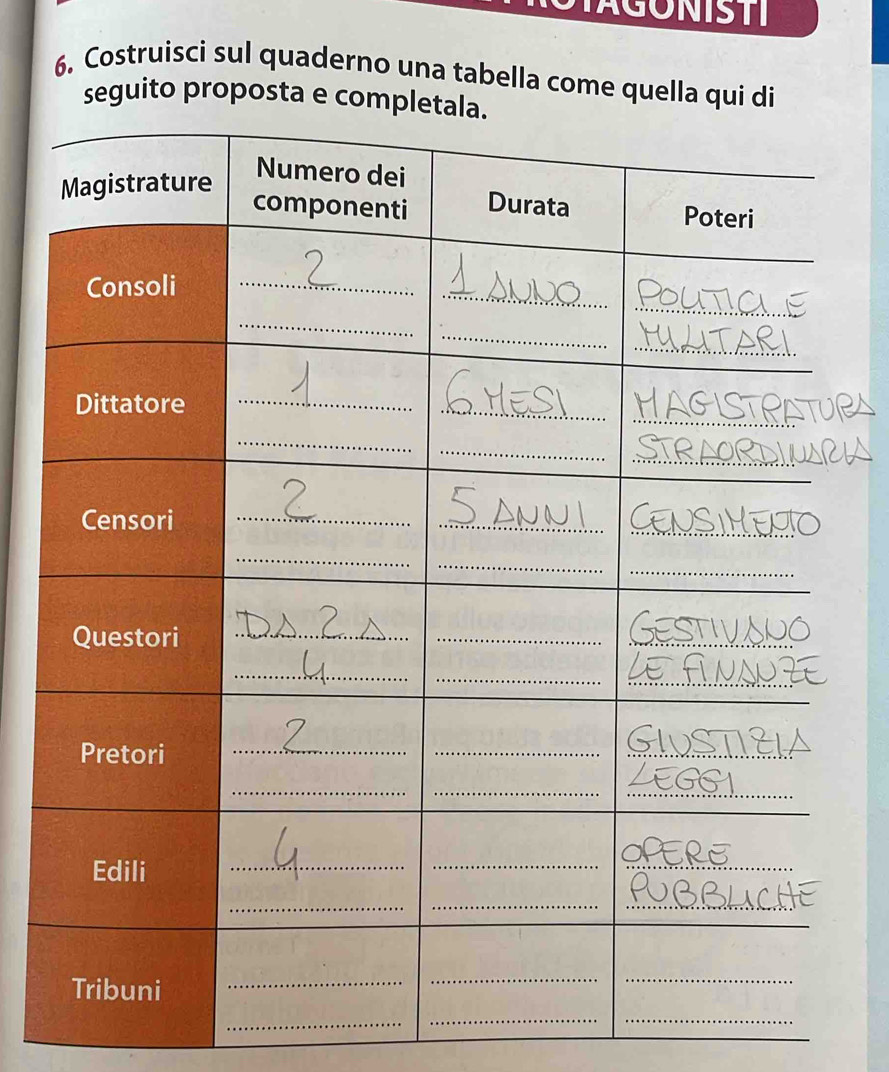 PROTAGONISTI
6. Costruisci sul quaderno una tabella come quella qui di
seguito proposta e completala.
Magistrature
Numero dei
componenti
Durata
Poteri
Consoli
2
1 ANNO
POLITICI E
MILITARI
Dittatore
1
6 MESI
MAGISTRATURA
STRAORDINARIA
Censori
2
5 ANNI
CENSIMENTO
Questori
DA 2 A
4
GESTIVANO
LE FINANZE
Pretori
2
GIUSTIZIA
LEGGI
Edili
4
OPERE
PUBBLICHE
Tribuni